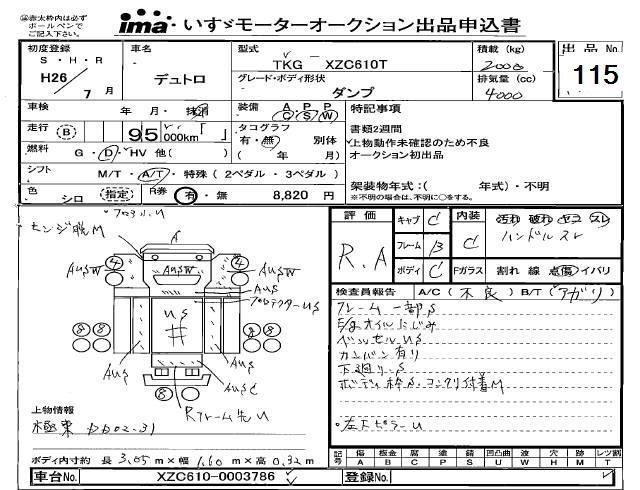 ㊟赤太枠内は必ず
ボールペンで
ご記入下さい。
ima いすゞモーターオークション出品申込書
初度登録
S・H・R
H26/7月
車名
デュトロ
型式
TKG - XZC610T
グレード・ボディ形状
ダンプ
積載 (kg)
2000
排気量 (cc)
4000
出品 No.
115
車検 年 月・抹消
装備 A P P C S W
特記事項
走行 B 95,000km「 」
タコグラフ 有・無 別体
( 年 月)
書類2週間
上物動作未確認のため不良
オークション初出品
燃料 G・D・HV 他( )
シフト M/T・A/T・特殊(2ペダル・3ペダル)
架装物年式:( 年式)・不明
※不明の場合は、不明に○をする。
色 シロ (指定)
R券 有・無 8,820 円
評価
R.A
キャブ C
フレーム B
ボディ C
内装 C
Fガラス 割れ 線 点傷 イバリ
汚れ 破れ コゲ スレ
ハンドルスレ
検査員報告 A/C(不良) B/T(アガリ)
フレーム一部S
オイルにじみ
ベッセルUS
カンバン有り
下廻りS
ボディ枠S、コンクリ付着M
左下ピラーU
A
AUSW
④
④
AUSW
AUSW
AUS
プロテクターUS
US
井
⑧⑧
⑧⑧
AUS
AUS
AUSC
⑧
Rフレーム先U
上物情報
極東 DD02-31
ボディ内寸約 長 3.05 m×幅 1.60 m×高 0.32 m
記号 傷 A 凹 B 腐 C 歪 P 錆 S 凹凸曲 U 波 W 穴 H 跡 M レツ割 T
車台No. XZC610-0003786
登録No.